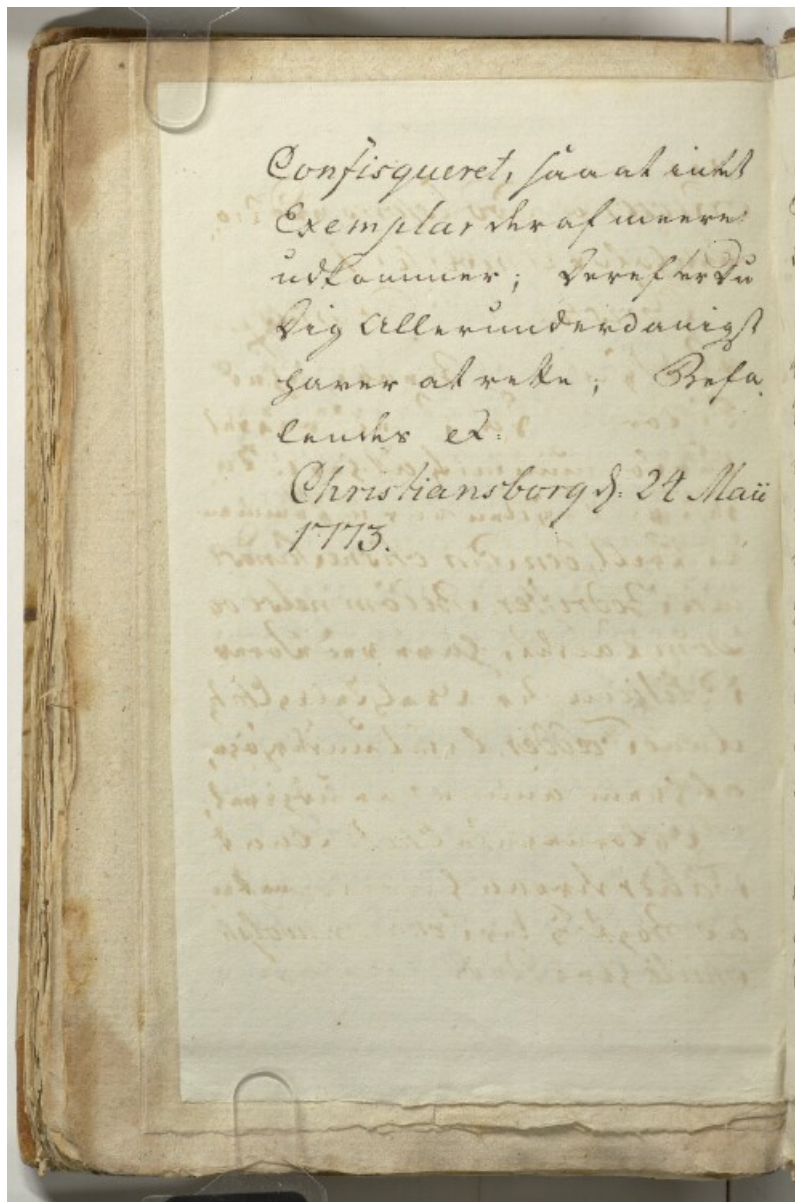 Confisqueret, saa at intet
Exemplar deraf meere
udkommer; Derefter Du
Dig Allerunderdanigst
haver at rette; Befa,
lendes et:
Christiansborg d: 24 Maii
1773.